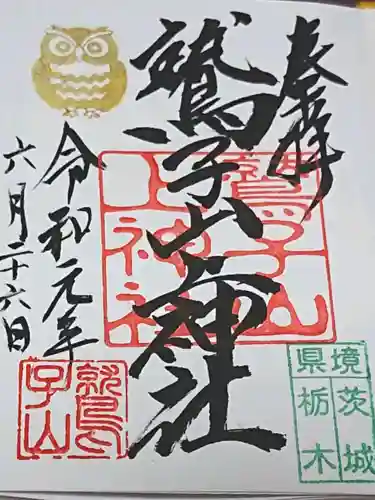 奉拝
鷲子山上神社
令和元年
六月二十六日
鷲子山
上神社
鷲子山
境 茨城
県 栃木